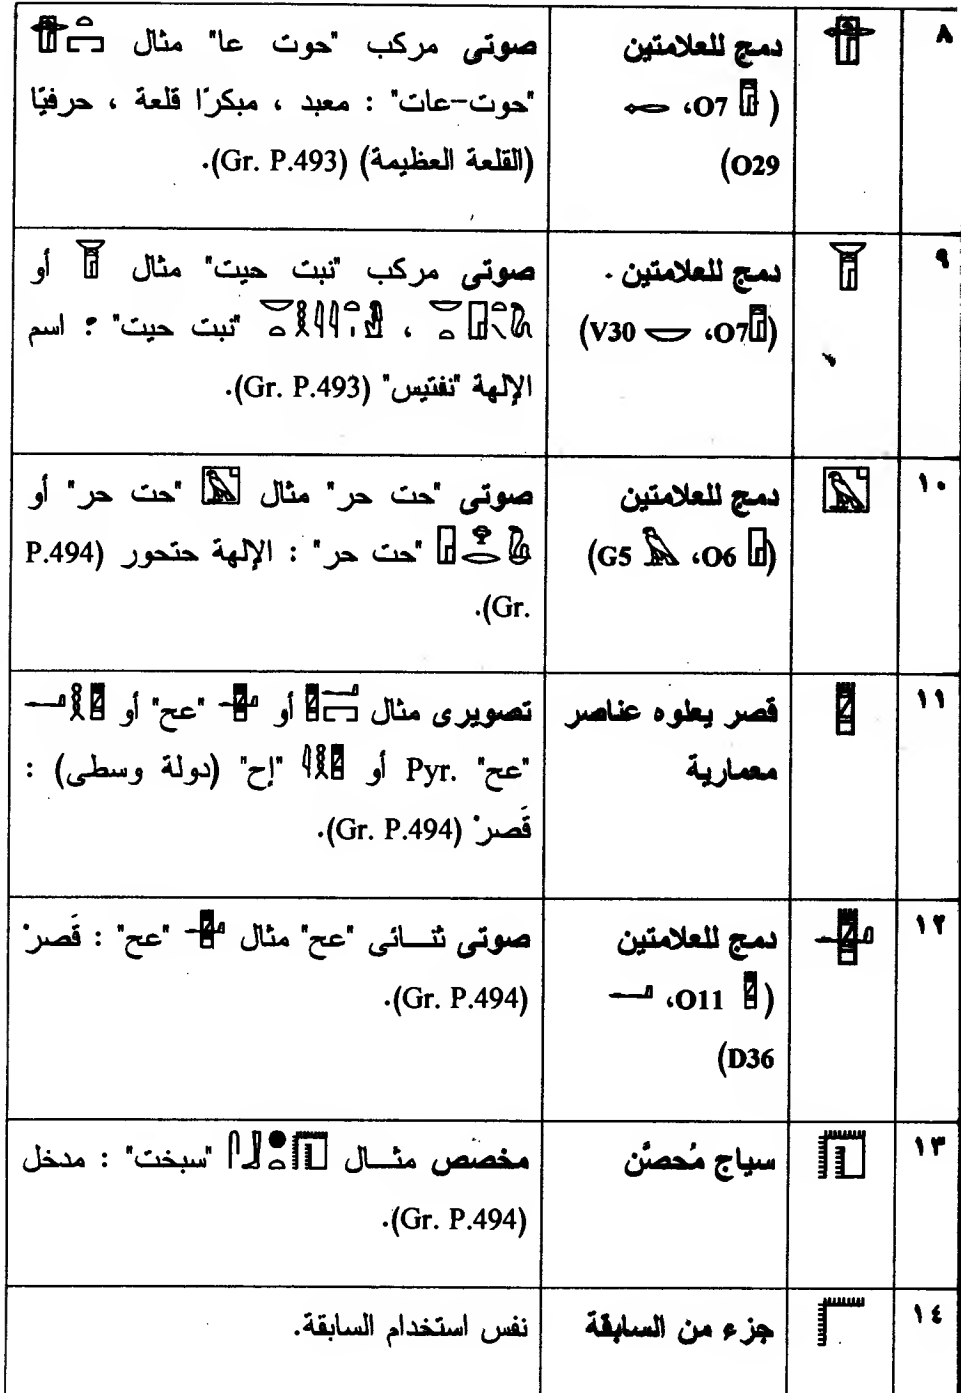 ٨
دمج للعلامتين
( O7،
O29)
صوتى مركب "حوت عا" مثال
"حوت-عات" : معبد ، مبكرًا قلعة ، حرفيًا
(القلعة العظيمة) (Gr. P.493).
٩
دمج للعلامتين .
(O7، V30)
صوتى مركب "نبت حيت" مثال أو
، "نبت حيت" : اسم
الإلهة "نفتيس" (Gr. P.493).
١٠
دمج للعلامتين
(O6، G5)
صوتى "حت حر" مثال "حت حر" أو
"حت حر" : الإلهة حتحور (P.494
Gr.).
١١
قصر يعلوه عناصر
معمارية
تصويرى مثال أو "عح" أو
"عح" Pyr. أو "إح" (دولة وسطى) :
قَصرْ (Gr. P.494).
١٢
دمج للعلامتين
( O11،
D36)
صوتى ثنـائى "عح" مثال "عح" : قَصرْ
(Gr. P.494).
١٣
سياج مُحصَّن
مخصص مثـال "سبخت" : مدخل
(Gr. P.494).
١٤
جزء من السابقة
نفس استخدام السابقة.